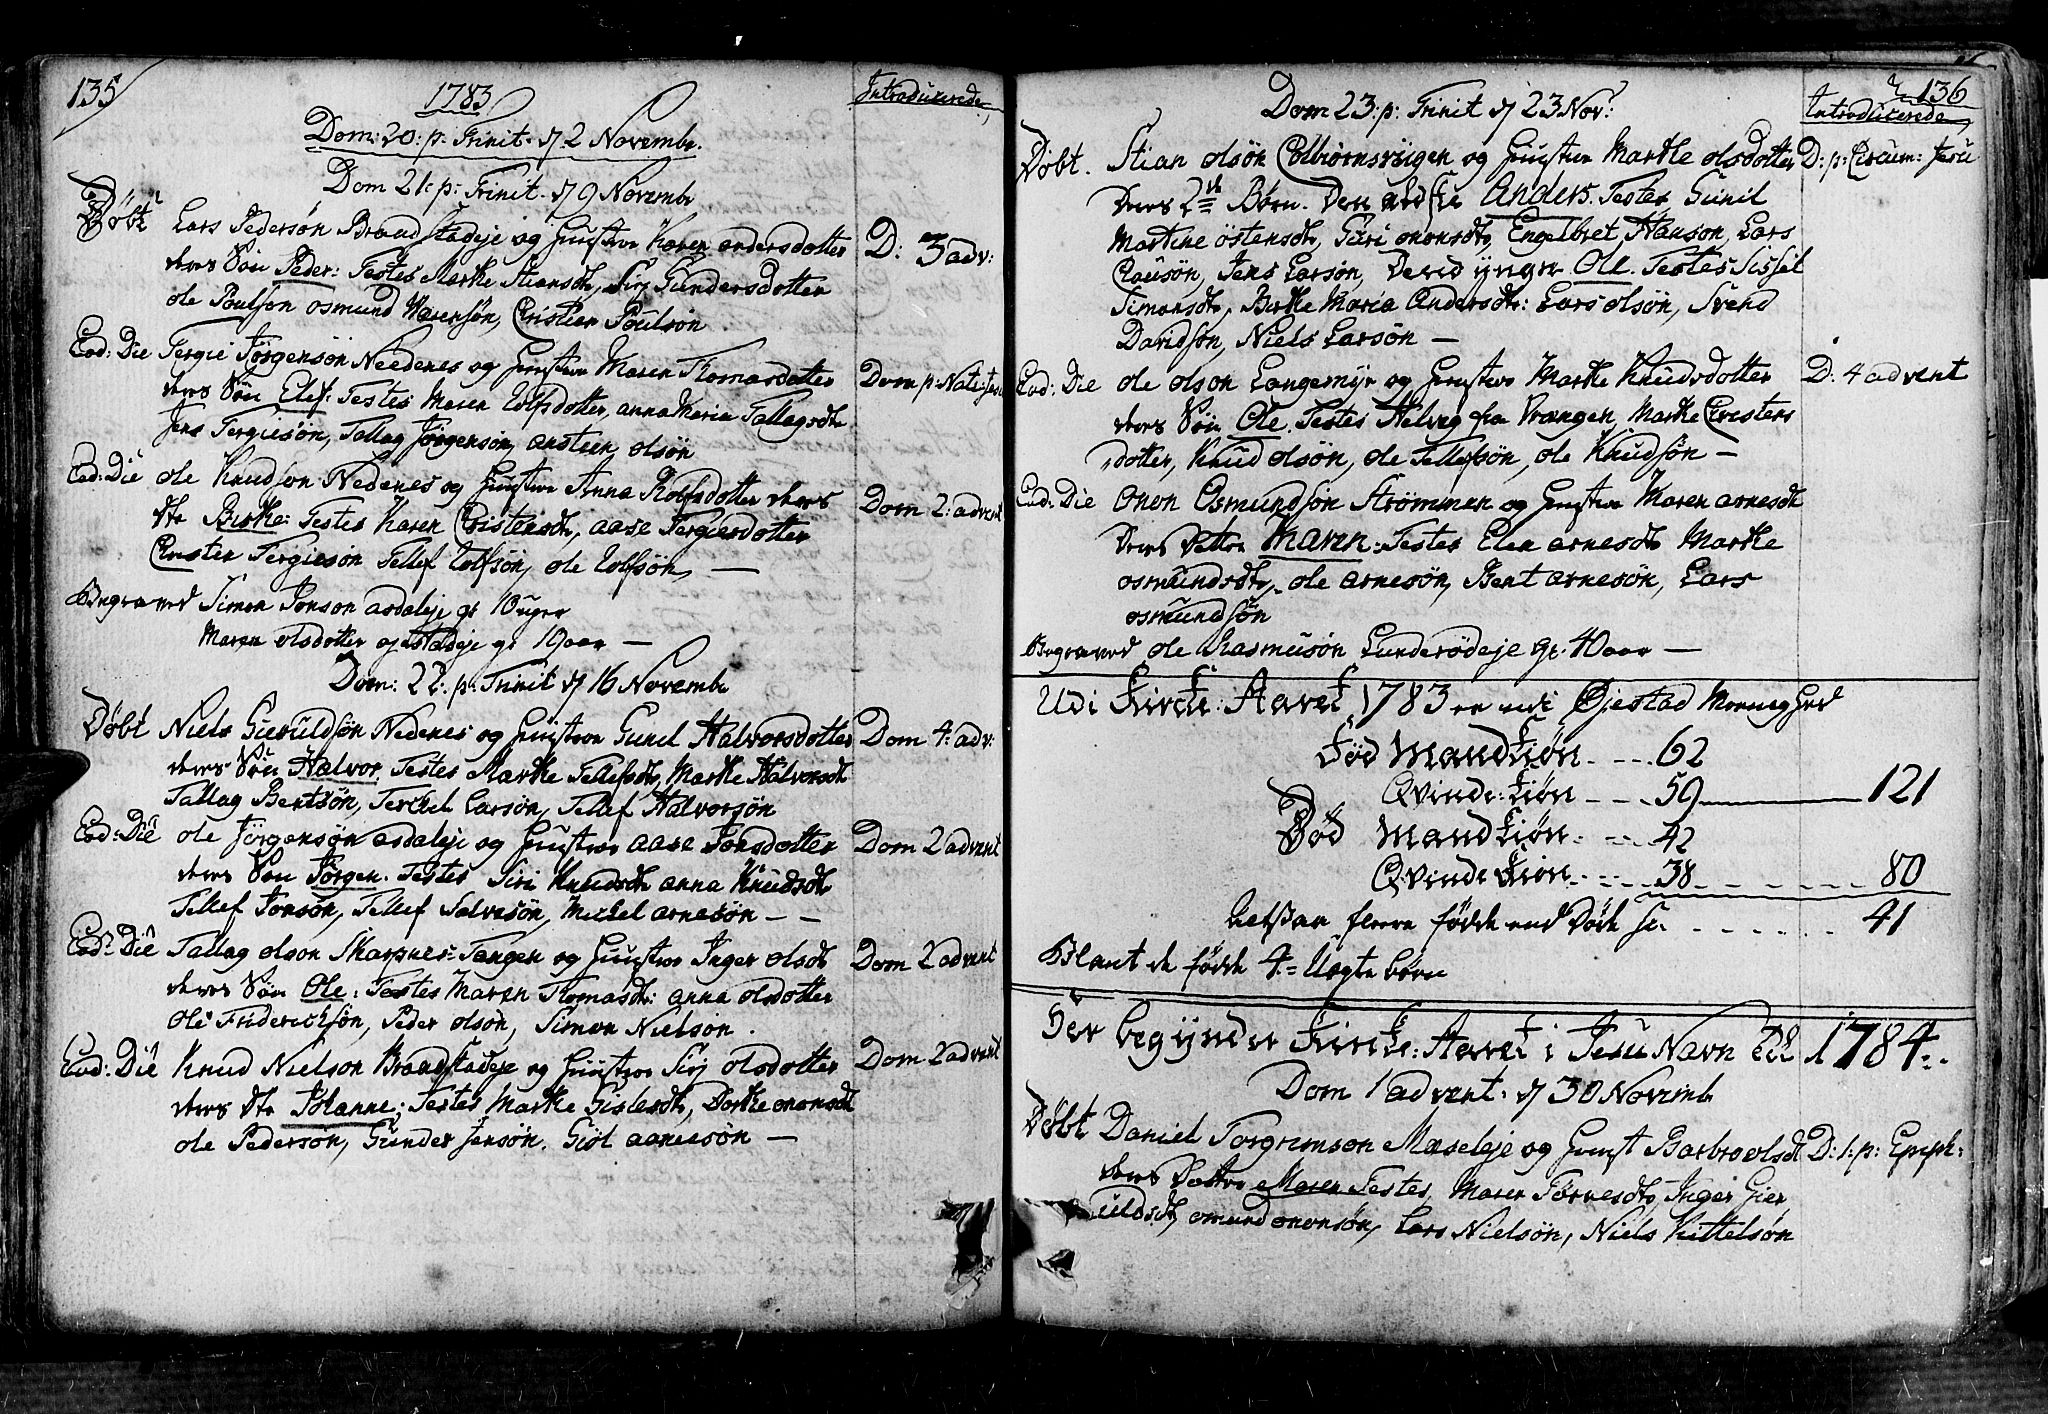 135
1783
Introducerede
Dom: 20: p: Trinit d 2 Novembr.
Dom 21: p: Trinit. d 9 Novembr
Døbt Lars Pedersøn Braastadeje og hustru Karen andersdotter D: 3 adv:
deres Søn Peder: Testes Marthe Stiansdt, Siri Gundersdotter
ole Poulsøn osmund Haversøn, Christen Poulsøn
Eod: Die Tergie Jørgensøn Nedenes og hustru Maren Thomasdotter Dom p: Nati: Jesu
deres Søn Elef: Testes Maren Rolfsdotter, anna Maria Tallagsdt
Jens Tergiesøn, Tallag Jørgensøn, ansteen olsøn
Eod: Die ole Knudsøn Nedenes og hustru Anna Rolfsdotter deres Dom 2: advent
dtr Birthe: Testes Karen Christensdt, aase Tergiesdotter
Christen Tergiesøn Tellef Rolfsøn, ole Rolfsøn, —
Begraved Simon Jonson asdaleje gl 10 uger
Maren olsdotter øjestadeje gl 10 aar —
Dom: 22: p: Trinit d 16 Novembr
Døbt Niels Gieruldsøn Nedenes og hustru Gunil Halvorsdotter Dom 4: adv:
deres Søn Halvor. Testes Marthe Tellefsdt, Marthe Halvorsdt
Tallag Bentsøn, Terchel Larsøn, Tellef Halvorsøn
Eod: Die ole Jørgensøn asdaleje og hustru aase Jonsdotter Dom 2 advent
deres Søn Jørgen. Testes Siri Knudsdt anna Knudsdt
Tellef Jonsøn, Tellef Salvesøn, Michel arnesøn — —
Eod: Die Tallag olson Skarpnes: Tangen og hustru Inger olsdt Dom 2 advent
deres Søn Ole: Testes Maren Thomasdt: anna olsdotter
Ole Friderichsøn, Peder olsøn, Simon Nielsøn.
Eod: Die Knud Nielson Braastadeje og hustru Siri olsdotter Dom 2 advent
deres dtr Johanne; Testes Marthe Gislesdt, Dorthe ononsdt
ole Pedersøn, Gunder Jensøn. Giøl aanesøn —
136
Dom 23: p: Trinit d 23 Novr
Introducerede
Døbt. Stian olsøn Colbiørnsviigen og hustru Marthe olsdotter D: p: Circum: Jesu
deres 2de Børn. Den ældste Anders. Testes Gunil
Martine Østensdt, Guri ononsdt, Engelbret Hanson, Lars
Clausøn, Jens Larsøn, Den yngre Ole. Testes Sissel
Simonsdt, Birthe Maria Andersdt: Lars olsøn, Svend
Davidsøn, Niels Larsøn —
Eod: Die ole olson Langemyr og hustru Marthe Knudsdotter D: 4 advent
deres Søn Ole, Testes Helvig fra Vrængen, Marthe Christens
dotter, Knud olsøn, ole Tellefsøn, ole Knudsøn —
Eod: Die Onon Osmundsøn Strømmen og hustru Maren arnesdt
deres Dotter Maren: Testes Elen arnesdt Marthe
osmundsdt, ole arnesøn, Bent arnesøn, Lars
osmundsøn
Begraved ole Rasmusøn Lunderødeje gl. 40 aar —
Udi Kirke: Aaret 1783 er udi Øjestad Menighed
Fød Mandkiøn. - - - 62
Qvinde: kiøn - - - 59 — 121
Død Mandkiøn. - - - 42
Qvinde kiøn - - - 38 - - - - - - 80
altsaa fleere fødde end Døde - - - - - - 41
Blant de fødde 4= Uægte børn
Her begynder Kirke: Aaret i Jesu Navn 1784.
Dom 1 advent. d 30 Novemb
Døbt Daniel Torgrimson Maseleje og hust Barbro olsdt D: 1: p: Epiph:
deres Dotter Maren Testes, Maren Torvesdt, Inger Gier
uldsdt, omund ononsøn, Lars Nielsøn, Niels Kittelsøn